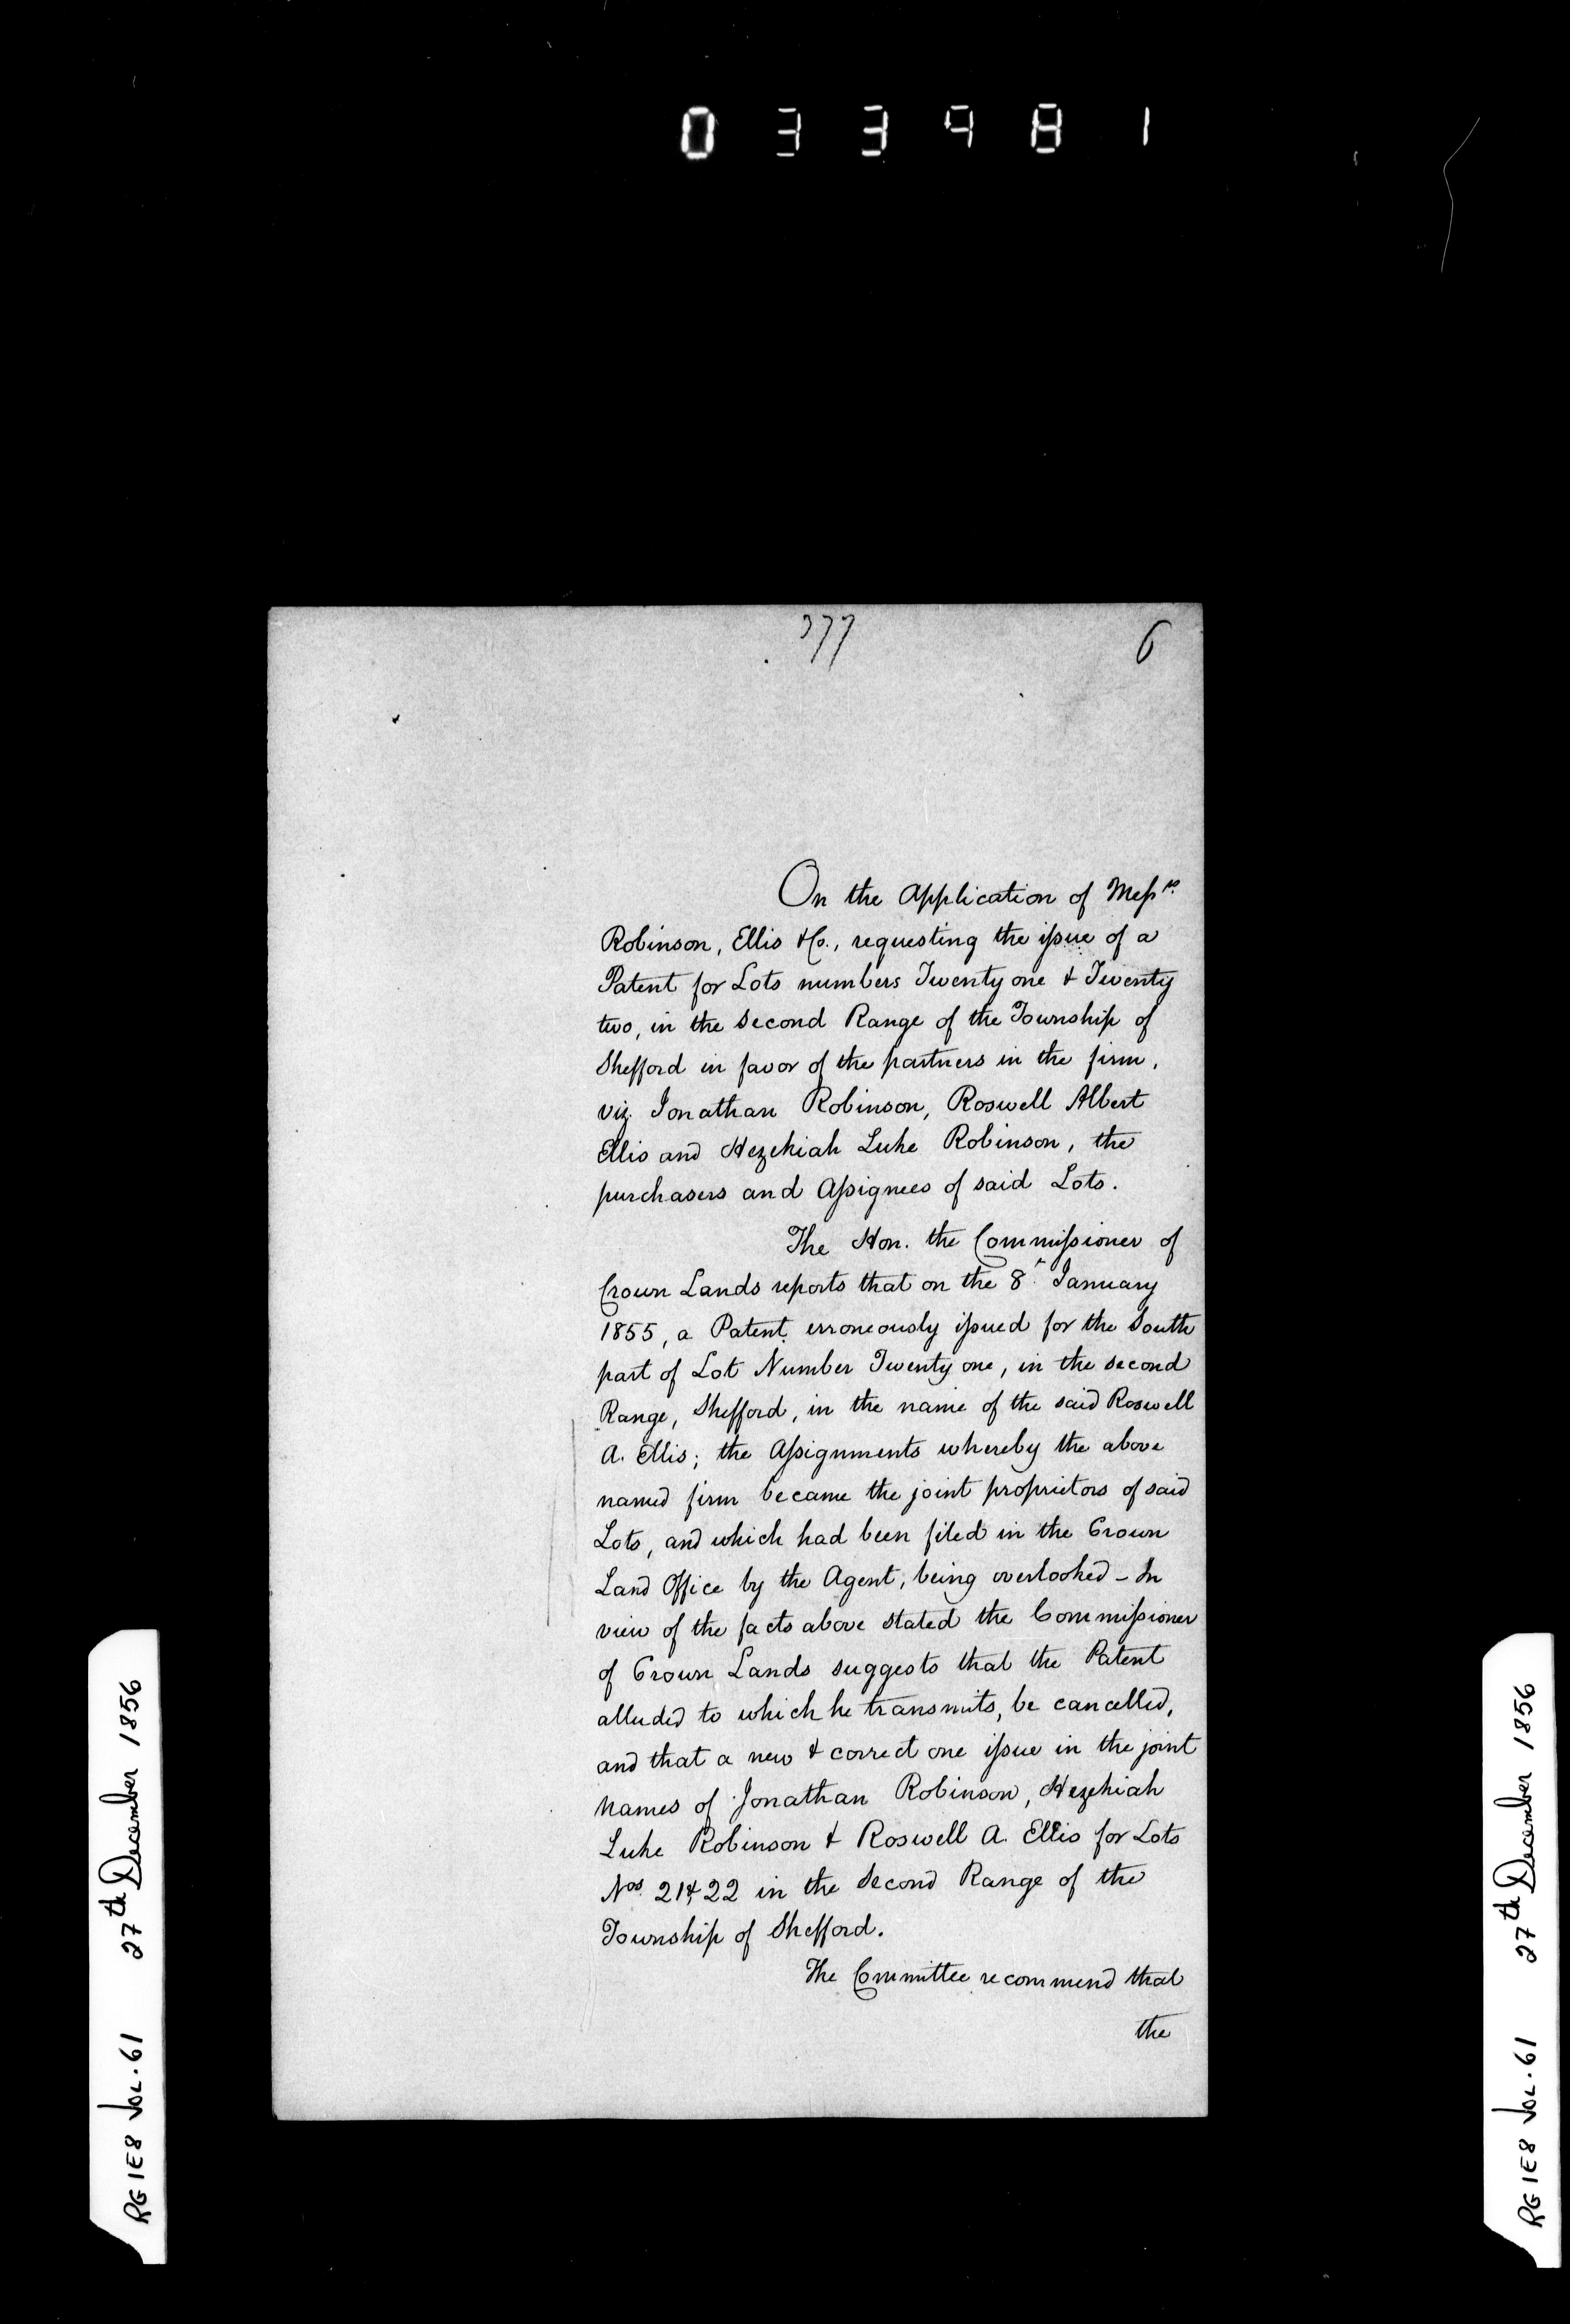 033981
377
6
On the Application of Messrs.
Robinson, Ellis & Co., requesting the issue of a
Patent for Lots numbers Twenty one & Twenty
two, in the Second Range of the Township of
Shefford in favor of the partners in the firm,
viz. Jonathan Robinson, Roswell Albert
Ellis and Hezekiah Luke Robinson, the
purchasers and Assignees of said Lots.
The Hon. the Commissioner of
Crown Lands reports that on the 8th January
1855, a Patent erroneously issued for the South
part of Lot Number Twenty one, in the second
Range, Shefford, in the name of the said Roswell
A. Ellis; the Assignments whereby the above
named firm became the joint proprietors of said
Lots, and which had been filed in the Crown
Land Office by the Agent, being overlooked – In
view of the facts above stated the Commissioner
of Crown Lands suggests that the Patent
alluded to which he transmits, be cancelled,
and that a new & correct one issue in the joint
names of Jonathan Robinson, Hezekiah
Luke Robinson & Roswell A. Ellis for Lots
Nos. 21 & 22 in the Second Range of the
Township of Shefford.
The Committee recommend that
the
RG 1E8 VOL. 61 27th December 1856
RG 1E8 VOL. 61 27th December 1856